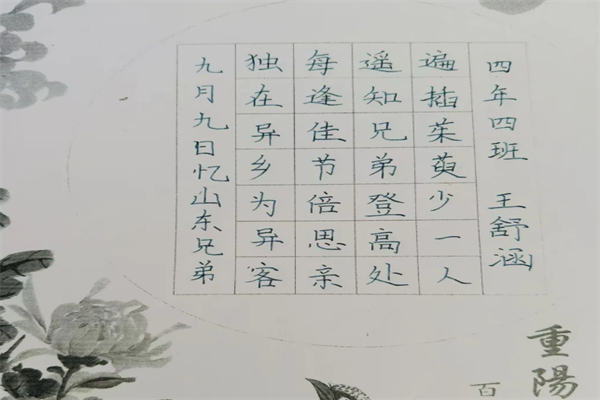 九月九日忆山东兄弟
独在异乡为异客
每逢佳节倍思亲
遥知兄弟登高处
遍插茱萸少一人
四年四班 王舒涵
重陽
百